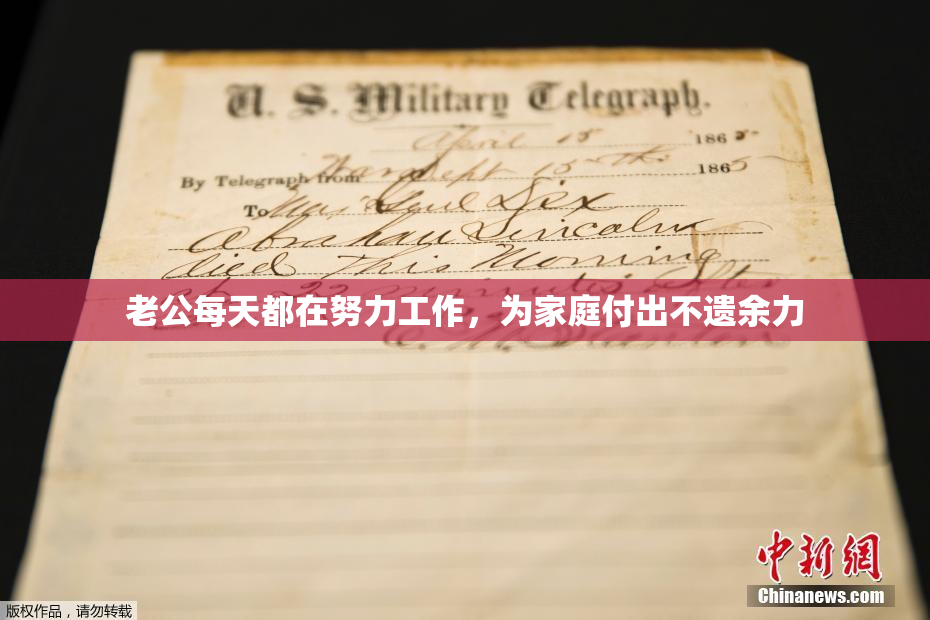 U. S. Military Telegraph.
April 15 1865
By Telegraph from War Dept 15th 1865
To Maj Genl Dix
Abraham Lincoln
died This Morning
at 22 minutes after
老公每天都在努力工作，为家庭付出不遗余力
E. M. Stanton
中新网
Chinanews.com
版权作品，请勿转载